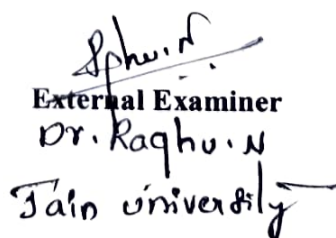 External Examiner
Dr. Raghu. N
Jain University